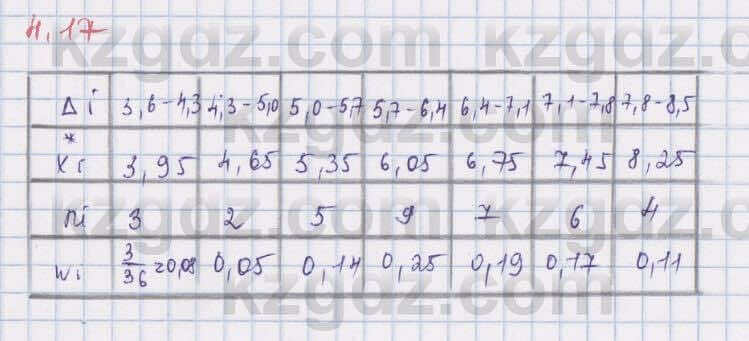 4.17
Δi 3,6-4,3 4,3-5,0 5,0-5,7 5,7-6,4 6,4-7,1 7,1-7,8 7,8-8,5
x*i 3,95 4,65 5,35 6,05 6,75 7,45 8,25
ni 3 2 5 9 7 6 4
wi 3/36=0,08 0,05 0,14 0,25 0,19 0,17 0,11
kzgdz.com
kzgdz.com
kzgdz.com
kzgdz.com
kzgdz.com
kzgdz.com